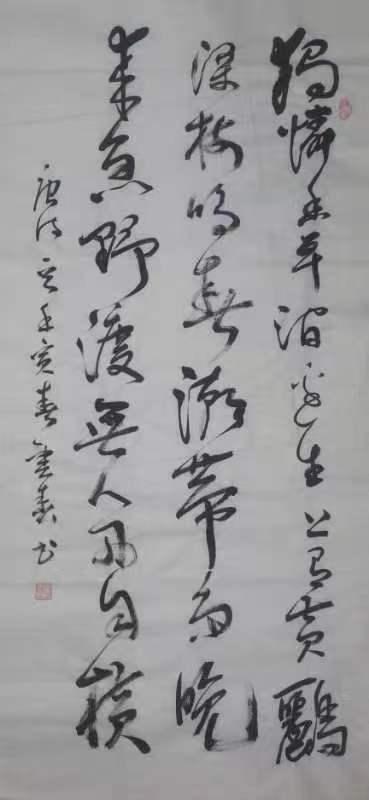 獨憐幽草澗邊生上有黃鸝
深樹鳴春潮帶雨晚
來急野渡無人舟自橫
唐诗 寅春 书